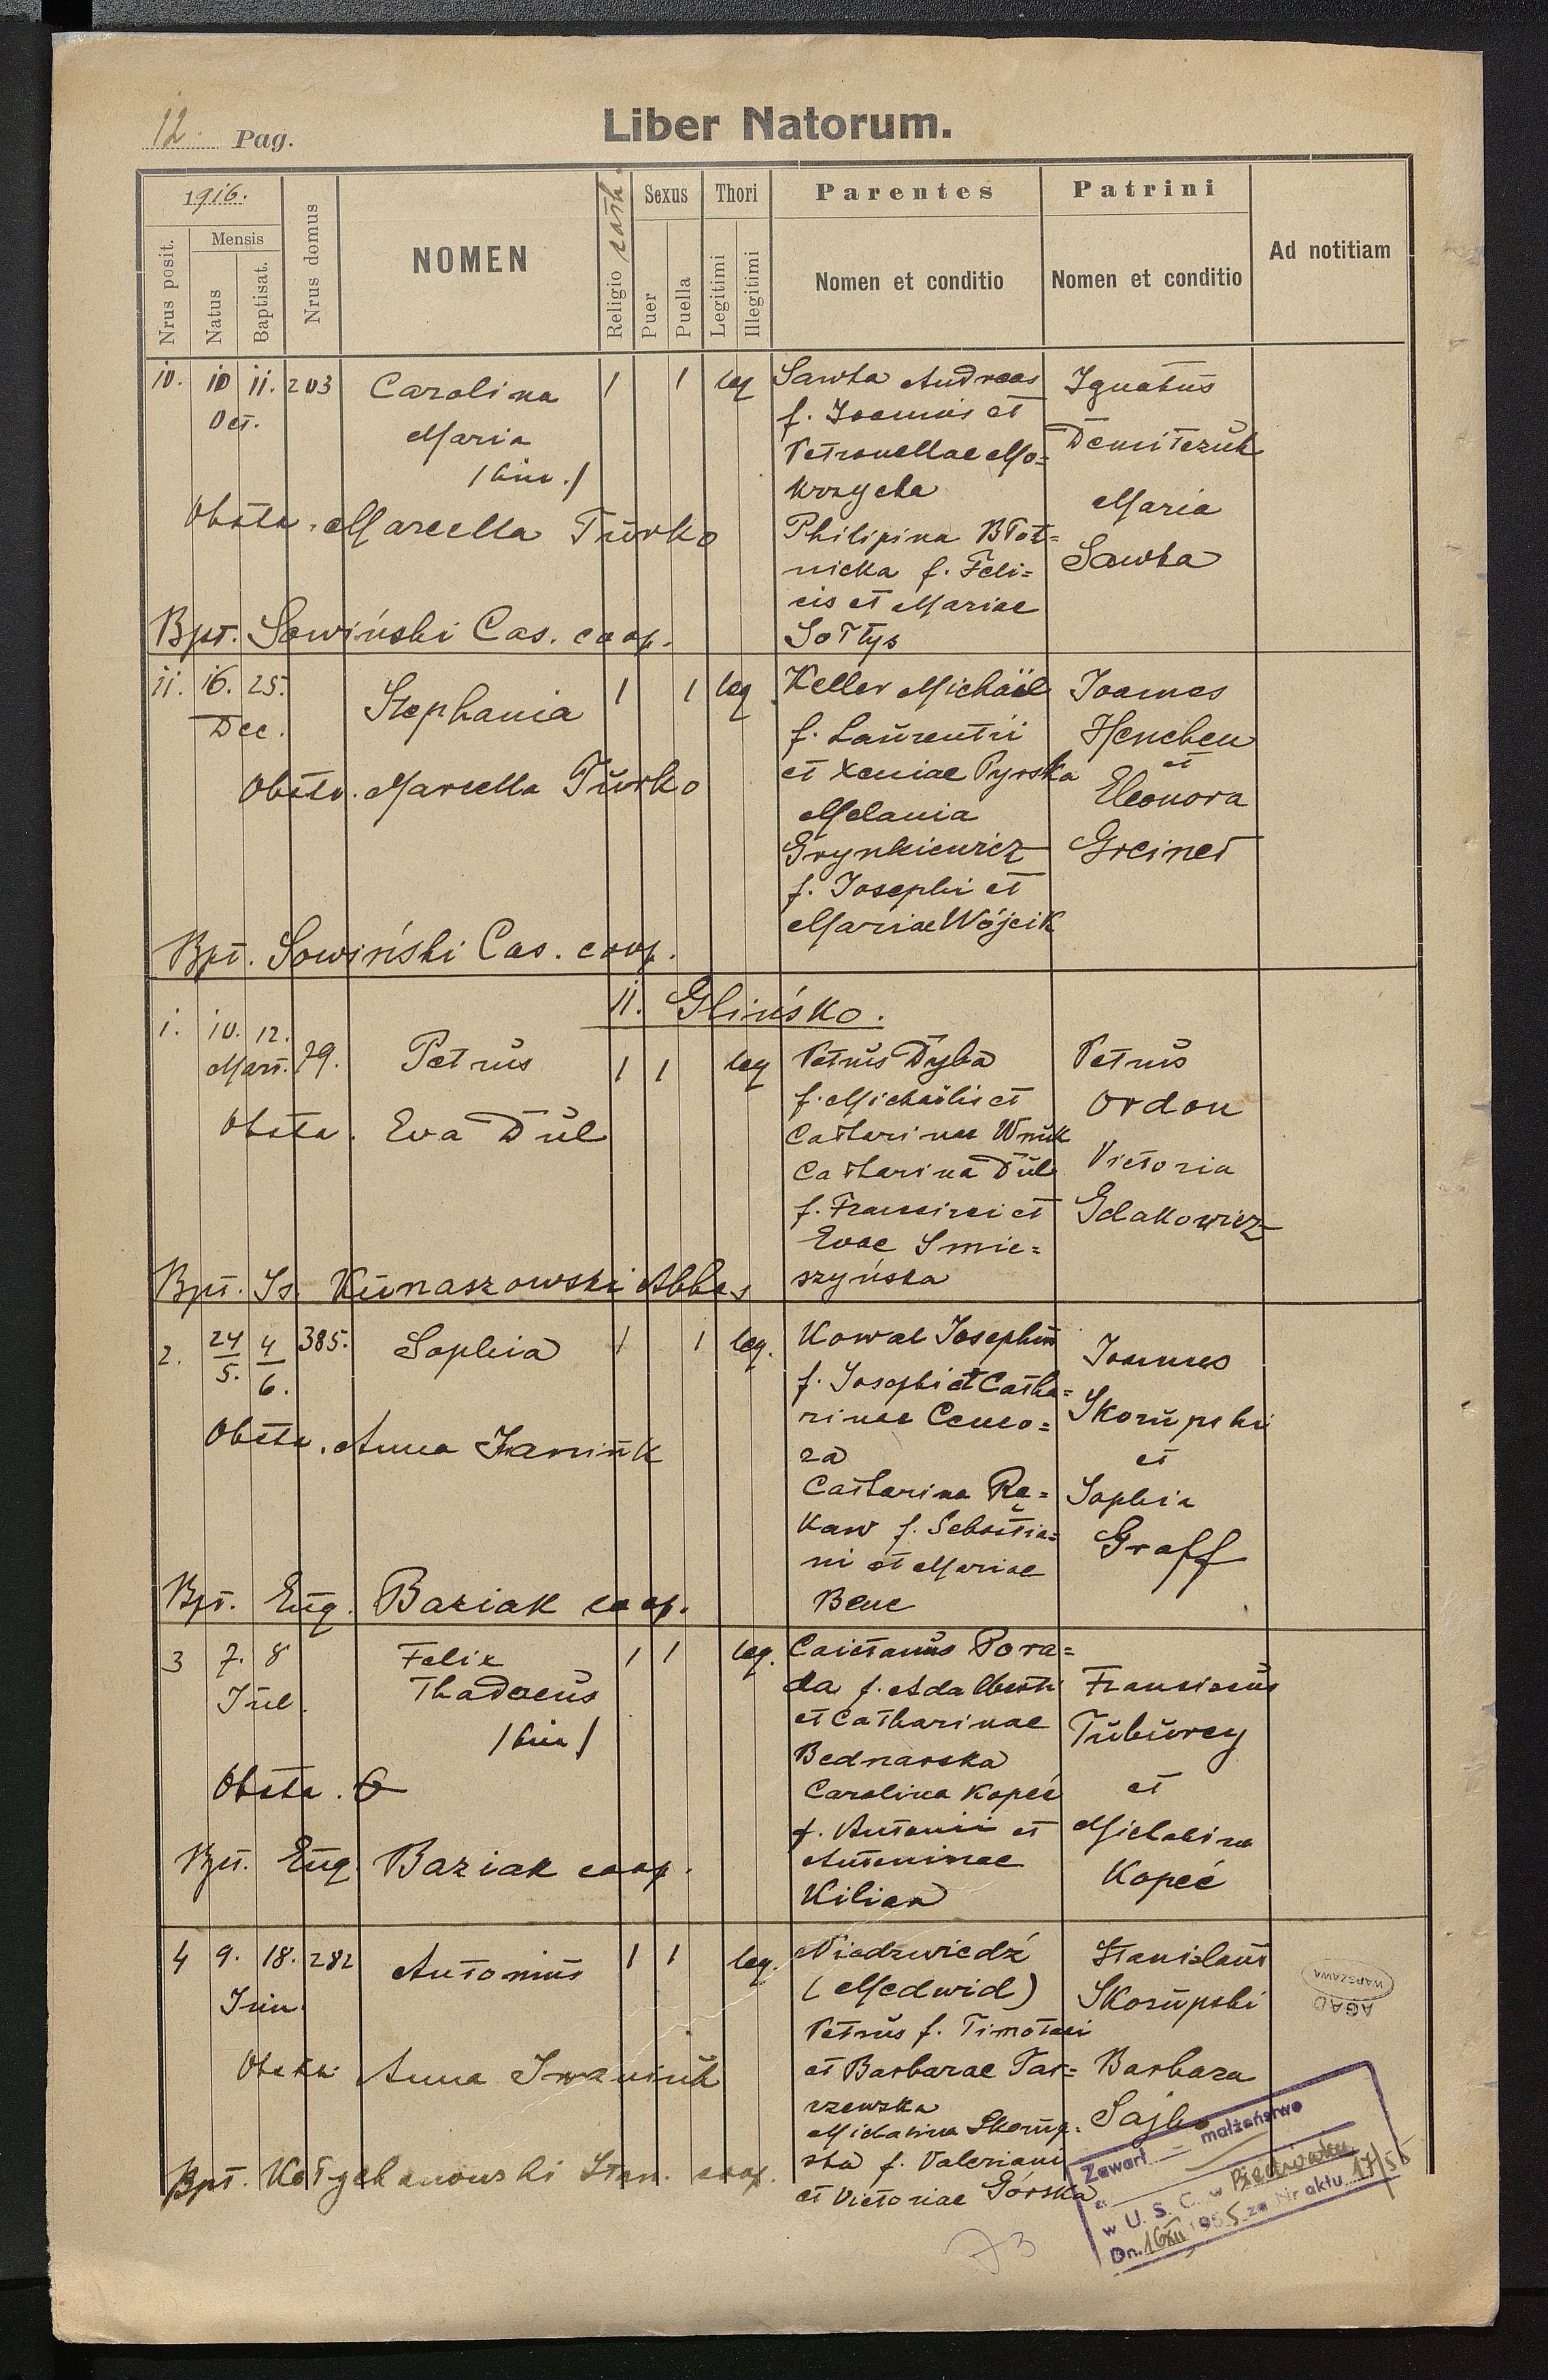 12. Pag.
Liber Natorum.
1916.
Nrus posit.
Mensis
Natus
Baptisat.
Nrus domus
NOMEN
Religio cath.
Sexus
Puer
Puella
Thori
Legitimi
Illegitimi
Parentes
Nomen et conditio
Patrini
Nomen et conditio
Ad notitiam
10. 10 11. 203
Oct.
Carolina
Maria
/bin./
1 1 leg
Obste. Marcella Turko
Bpt. Sowiński Cas. coop.
Sawka Andreas
f. Joannis et
Petronellae Mo=
krzycka
Philipina Błot=
nicka f. Feli=
cis et Mariae
Sołtys
Ignatius
Demitczuk
Maria
Sawka
11. 16. 25.
Dec.
Stephania
1 1 leg.
Obste. Marcella Turko
Bpt. Sowiński Cas. coop.
Keller Michäel
f. Laurentii
et Xeniae Pyrska
Melania
Grynkiewicz
f. Josephi et
Mariae Wójcik
Joannes
Henchen
et
Eleonora
Greiner
II. Glińsko.
1. 10. 12.
Mart. 79.
Petrus
1 1 leg
Obste. Eva Dul
Bpt. Is. Kunaszowski Abbas
Petrus Dyba
f. Michaëlis et
Catharinae Wnuk
Catharina Dul
f. Francisci et
Evae Smie=
szyńska
Petrus
Ordon
Victoria
Gdakowicz
2. 24/5. 4/6. 385.
Sophia
1 1 leg.
Obste. Anna Iwaniuk
Bpt. Eug. Baziak coop.
Kowal Josephus
f. Josephi et Catha=
rinae Cenco=
ra
Catharina Rę=
kaw f. Sebastia=
ni et Mariae
Benc
Joannes
Skorupski
et
Sophia
Graff
3 7. 8
Jul.
Felix
Thadaeus
/bin/
1 1 leg.
Obste.
Bpt. Eug. Baziak coop.
Caietanus Pora=
da f. Adalberti
et Catharinae
Bednarska
Carolina Kopeć
f. Antonii et
Antoninae
Kilian
Franciscus
Tuburcy
et
Michalina
Kopeć
4 9. 18. 282
Jun.
Antonius
1 1 leg.
Obste. Anna Iwaniuk
Bpt. Kołychanowski Stan. coop.
Niedzwiedź
(Medwid)
Petrus f. Timotaei
et Barbarae Tar=
rzewska
Michalina Skorup=
ska f. Valeriani
et Victoriae Górska
Stanislaus
Skorupski
Barbara
Sajko
AGAD
WARSZAWA
Zawarł — małżeństwo
w U. S. C. w
Dn. 16 XII 1955 za Nr aktu 17/55
73